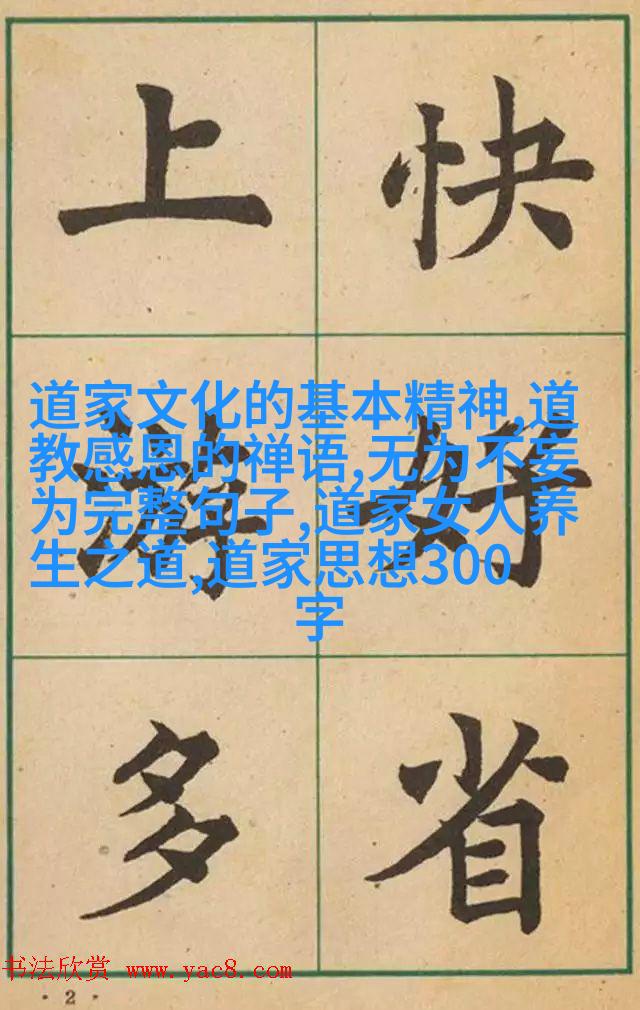 上游多
快好省
道家文化的基本精神,道
教感恩的禅语,无为不妄
为完整句子,道家女人养
生之道,道家思想300
字
书法欣赏 www.yac8.com
·2·